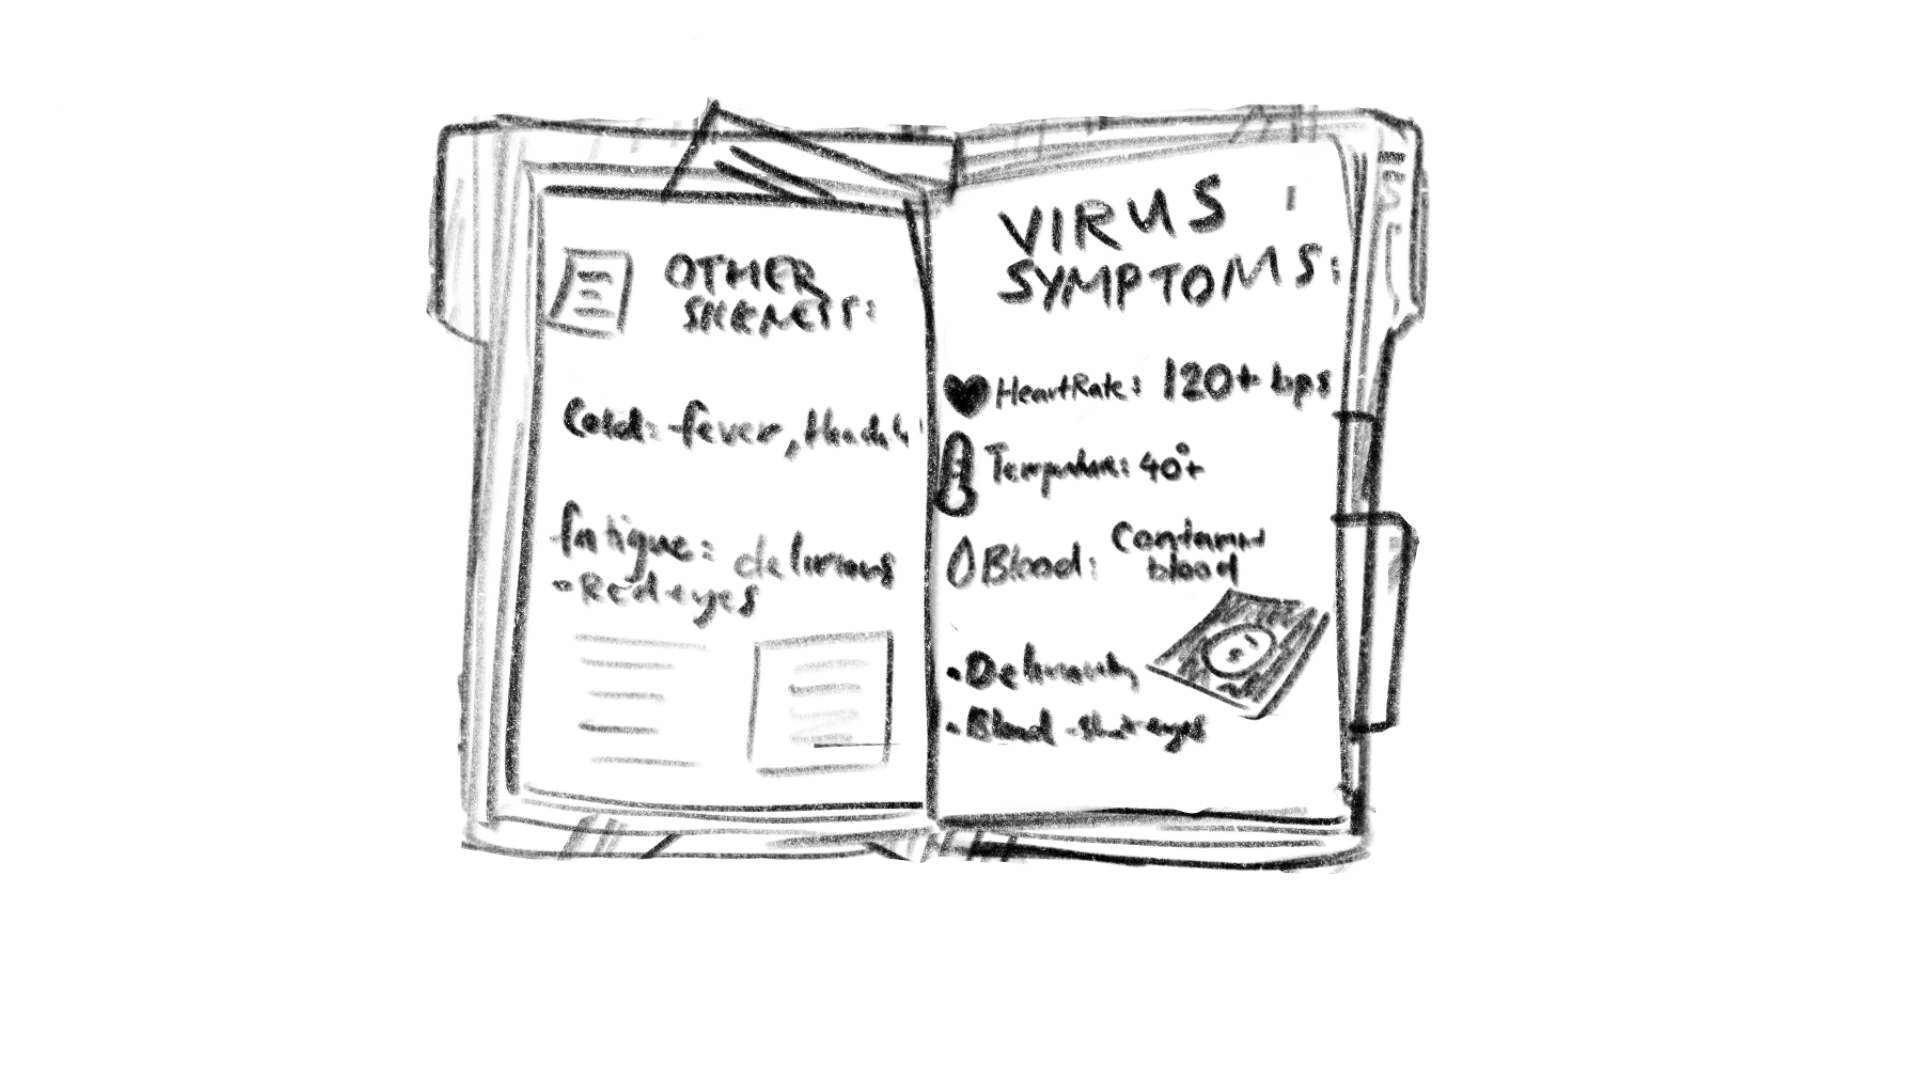 OTHER
SICKNESS:
Cold: fever,
fatigue: delirious
- Red eyes
VIRUS
SYMPTOMS:
HeartRate: 120+ bps
Temperature: 40°+
Blood: Contamint
blood
• Blood-shot eyes